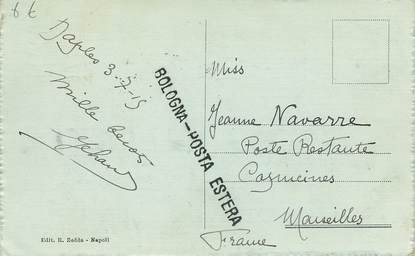 6 €
Naples 3-7-15
Mille
BOLOGNA-POSTA ESTERA
Miss
Jeanne Navarre
Poste Restante
Marseilles
France
Edit. R. Zedda - Napoli